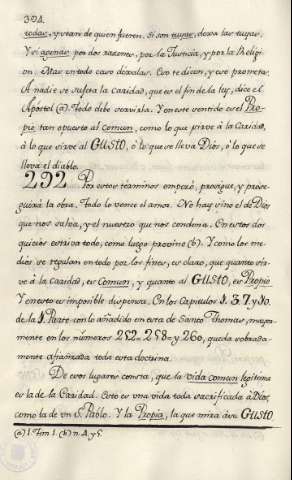 304.
todas, y vean de quien fueren. Si son suyas, dexa las suyas.
Y si agenas por dos razones, por la Justicia, y por la Religi
on. Mas en todo caso dexalas. Eso te dicen, y ese prometes.
A nadie se sujeta la caridad, que es el fin de la ley, dice el
Apóstol (a). Todo debe servirla. Y en este sentido es el Pro-
pio tan opuesto al comun, como lo que sirve à la Caridad,
à lo que sirve al GUSTO, ò lo que se lleva Dios, à lo que se
lleva el diablo.
292 Por estos términos empezò, prosigue, y prose-
guirá la obra. Todo lo vence el amor. No hay sino el de Dios
que nos salva, y el nuestro que nos condena. En estos dos
quicios estriva todo, como luego previne (b). Y como los me-
dios se regulan en todo por los fines, es claro, que quanto sir-
ve à la caridad, es Comun, y quanto al GUSTO, es Propio
Y en esto es imposible dispensa. Con los Capitulos 1. 37. y 10.
de la 1. Parte con lo añadido en esta de Santo Thomas, mayor-
mente en los números 252, 258, y 260, queda sobrada-
mente afianzada toda esta doctrina.
De esos lugares consta, que la vida comun legitima
es la de la Caridad. Esto es una vida toda sacrificada à Dios,
como la de un S. Pablo. Y la Propia, la que mira àve GUSTO
(a) 1. Tim 1. (b) n. 4. y 5.